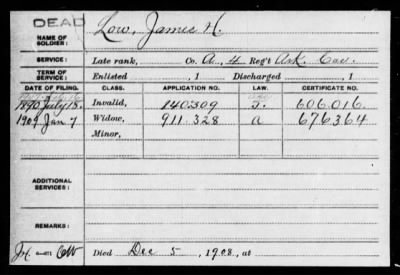 DEAD
NAME OF SOLDIER: Low, James H.
SERVICE: Late rank, Co. A, 4 Reg't Ark. Cav.
TERM OF SERVICE: Enlisted , 1 Discharged , 1
DATE OF FILING. CLASS. APPLICATION NO. LAW. CERTIFICATE NO.
1890 July 18. Invalid, 140309 606.016.
1909 Jan 7 Widow, 911.328 a 676364
Minor,
ADDITIONAL SERVICES:
REMARKS:
Died Dec 5, 1908, at